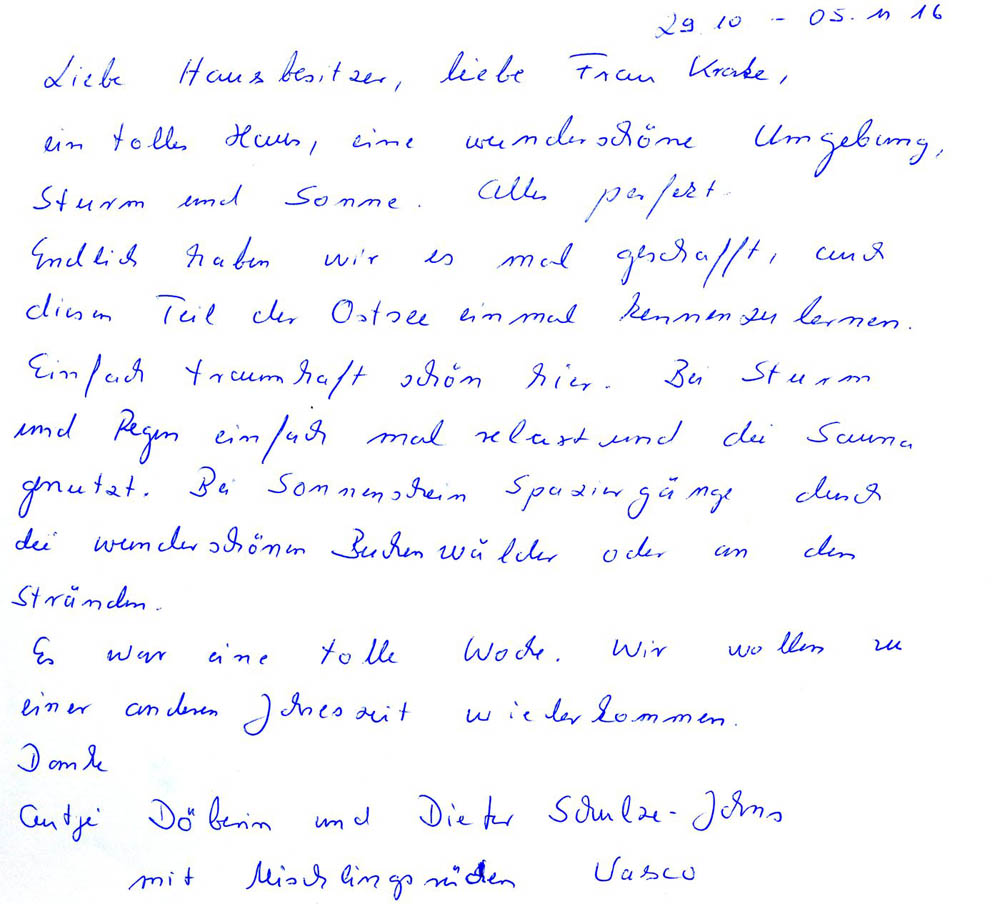 29.10 - 05.11 16
Liebe Hausbesitzer, liebe Frau Krake,
ein tolles Haus, eine wunderschöne Umgebung,
Sturm und Sonne. Alles perfekt.
Endlich haben wir es mal geschafft, auch
diesen Teil der Ostsee einmal kennenzulernen.
Einfach traumhaft schön hier. Bei Sturm
und Regen einfach mal relaxt und die Sauna
genutzt. Bei Sonnenschein Spaziergänge durch
die wunderschönen Buchenwälder oder an den
Stränden.
Es war eine tolle Woche. Wir wollen zu
einer anderen Jahreszeit wiederkommen.
Danke
Antje und Dieter Schulze-Johns
mit Mischlingsrüden Vasco